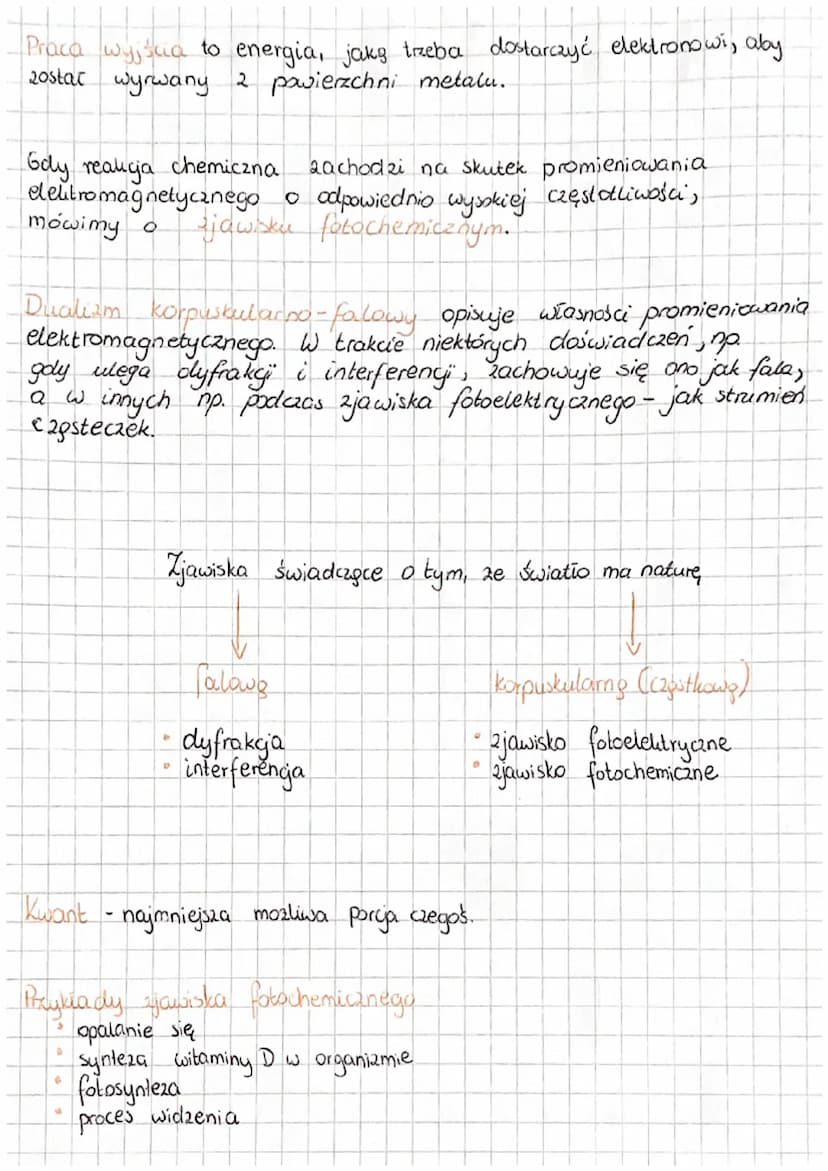 Praca wyjścia to energia, jaką trzeba dostarczyć elektronowi, aby
zostać wyrwany z powierzchni metalu.
Gdy reakcja chemiczna zachodzi na skutek promieniowania
elektromagnetycznego o odpowiednio wysokiej częstotliwości,
mówimy o zjawisku fotochemicznym.
Dualizm korpuskularno-falowy opisuje własności promieniowania
elektromagnetycznego. W trakcie niektórych doświadczeń, np.
gdy ulega dyfrakcji i interferencji, zachowuje się ono jak fala,
a w innych np. podczas zjawiska fotoelektrycznego - jak strumień
cząsteczek.
Zjawiska świadczące o tym, że światło ma naturę
falową
korpuskularną (cząstkową)
• dyfrakcja
• interferencja
• zjawisko fotoelektryczne
• zjawisko fotochemiczne
Kwant - najmniejsza możliwa porcja czegoś.
Przykłady zjawiska fotochemicznego
• opalanie się
• synteza witaminy D w organizmie
• fotosynteza
• proces widzenia